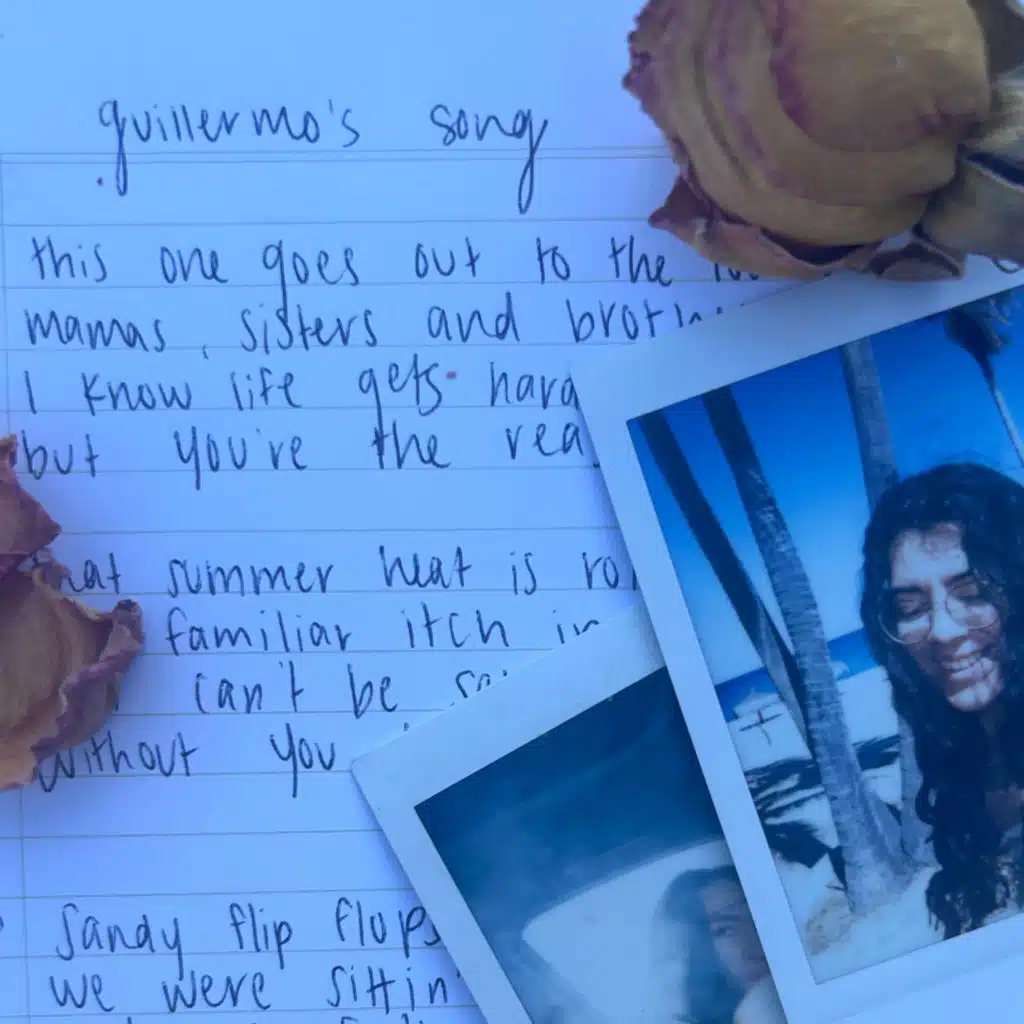 guillermo's song
this one goes out to the
mamas, sisters and
I know life gets
but you're the
summer heat is
familiar itch
can't be
without you
sandy flip flops
we were sittin'